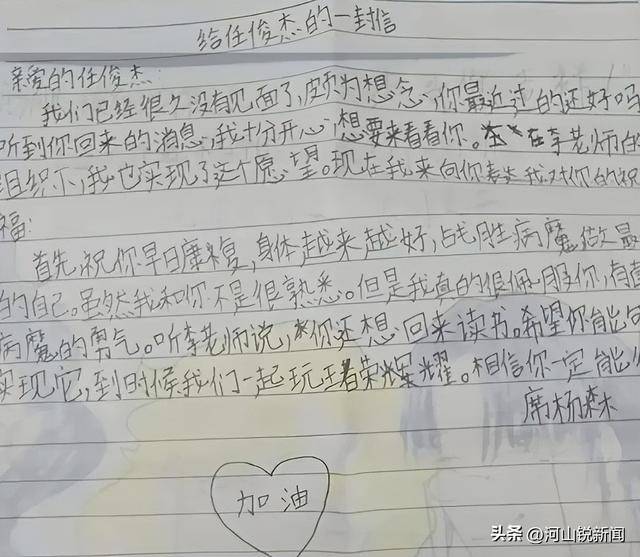 给任俊杰的一封信
亲爱的任俊杰:
我们已经很久没有见面了,颇为想念,你最近过的还好吗
听到你回来的消息,我十分开心,想要来看看你。在李老师的
组织下,我也实现了这个愿望。现在我来向你表达我对你的祝
福:
首先,祝你早日康复,身体越来越好,战胜病魔做最
的自己。虽然我和你不是很熟悉。但是我真的很佩服你,有
病魔的勇气。听李老师说,你还想回来读书。希望你能
实现它,到时候我们一起玩王者荣耀。相信你一定能
席杨森
加油
头条 @河山锐新闻